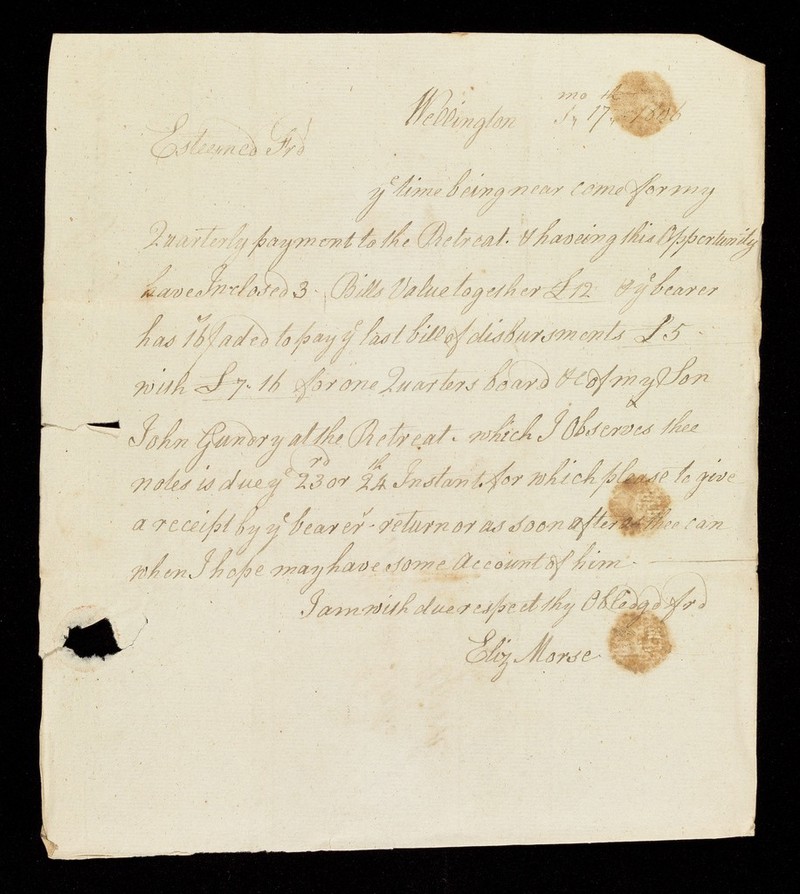 Wellington mo th 17 1806
Esteemed Frd
ye time being near come for my
Quarterly payment to the Retreat. & haveing this Oppertunity
have Inclosed 3 Bills Value together £12 & ye bearer
has to pay ye last bill of disbursments £5
with £7.16 for one Quarters board &c of my Son
John Gundry at the Retreat. which I Observes thee
notes is due ye 23rd or 24th Instant. for which please to give
a receipt by ye bearer return or as soon after as thee can
when I hope may have some Account of him
I am with due respect thy Obledgd frd
Eliz Morse